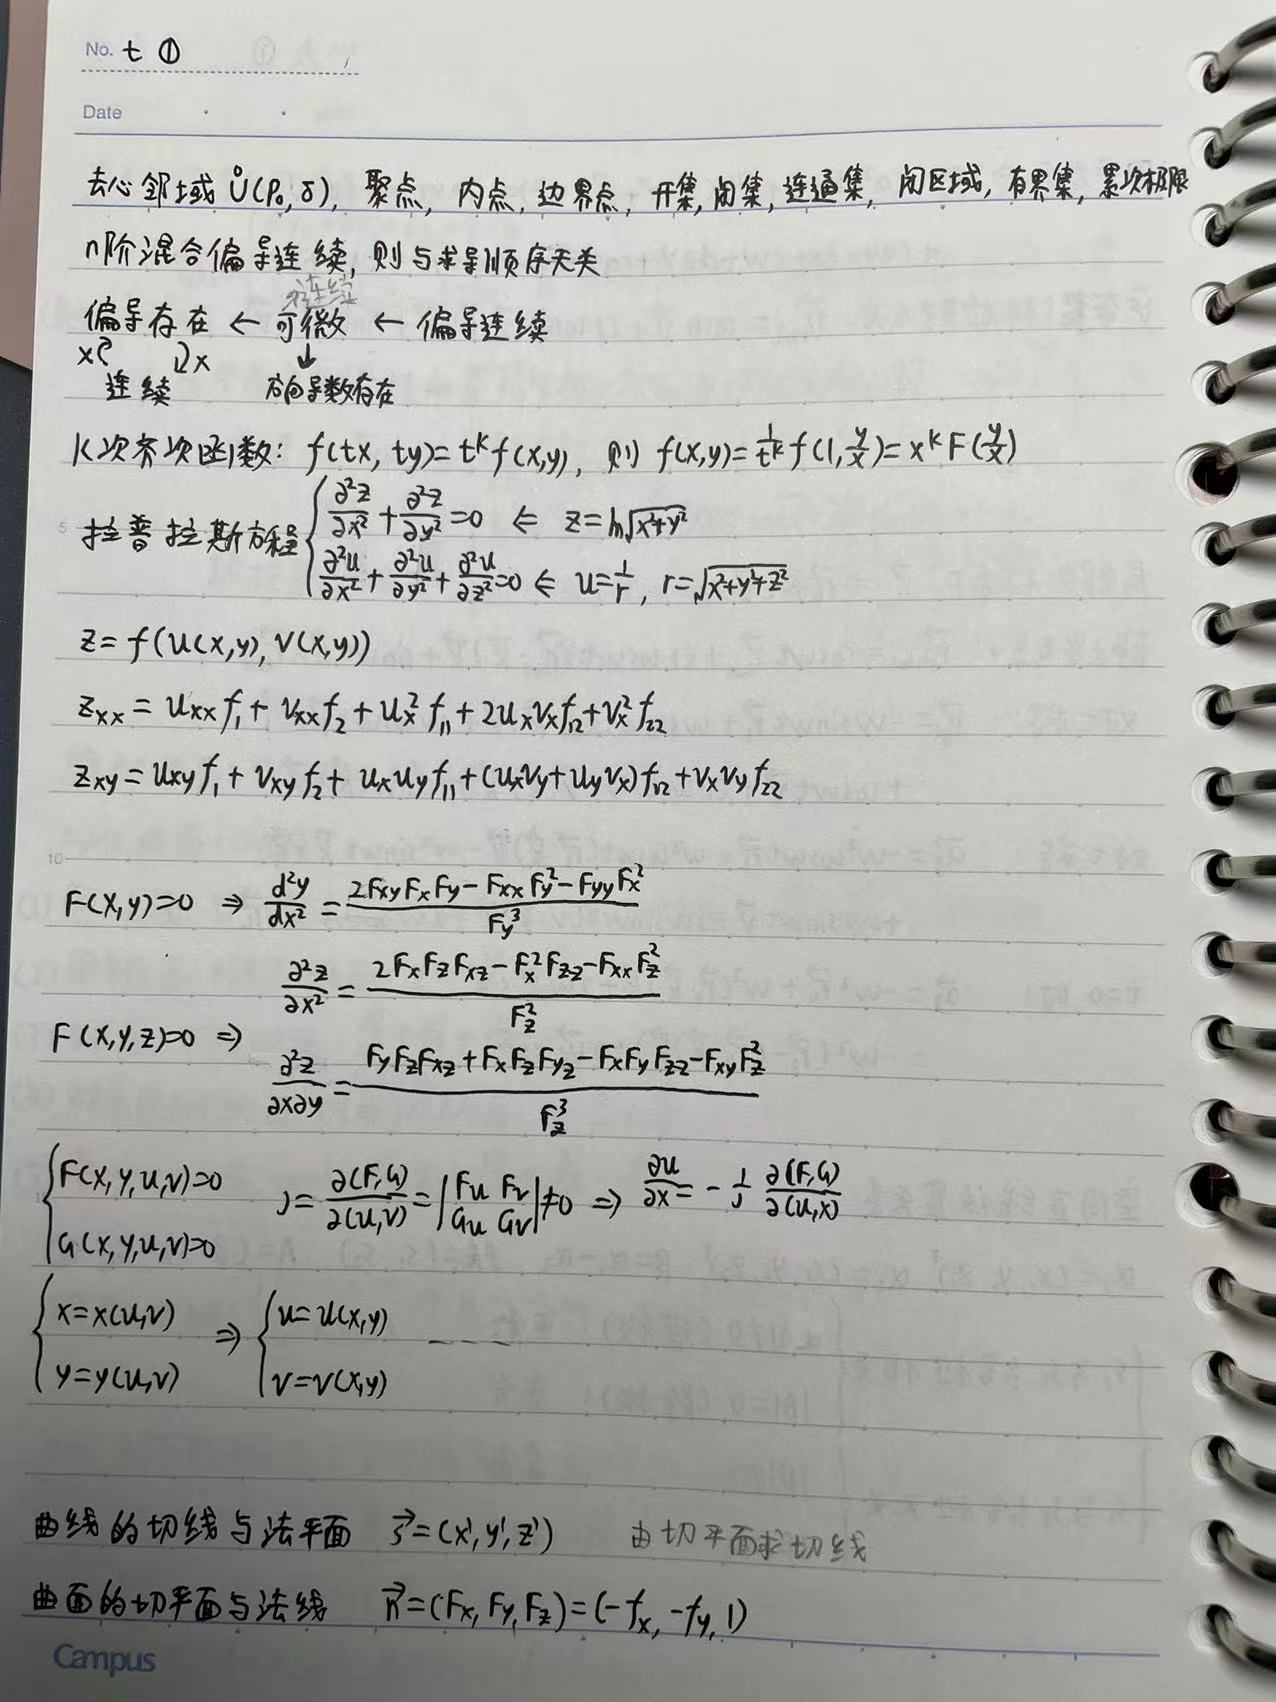 No. 七 ①
Date
去心邻域 Ů(P₀,δ), 聚点, 内点, 边界点, 开集, 闭集, 连通集, 闭区域, 有界集, 累次极限
n阶混合偏导连续, 则与求导顺序无关
连续
偏导存在 ← 可微 ← 偏导连续
x x
连续 方向导数存在
k次齐次函数: f(tx, ty)=t^k f(x,y), 则 f(x,y)=1/t^k f(1, y/x)=x^k F(y/x)
拉普拉斯方程 { ∂²z/∂x² + ∂²z/∂y² =0 ⇐ z=ln√(x²+y²)
∂²u/∂x² + ∂²u/∂y² + ∂²u/∂z² =0 ⇐ u=1/r, r=√(x²+y²+z²)
z= f(u(x,y), v(x,y))
z_xx = u_xx f₁ + v_xx f₂ + u_x² f₁₁ + 2u_x v_x f₁₂ + v_x² f₂₂
z_xy = u_xy f₁ + v_xy f₂ + u_x u_y f₁₁ + (u_x v_y + u_y v_x) f₁₂ + v_x v_y f₂₂
F(x,y)=0 ⇒ d²y/dx² = (2F_xy F_x F_y − F_xx F_y² − F_yy F_x²)/F_y³
∂²z/∂x² = (2F_x F_z F_xz − F_x² F_zz − F_xx F_z²)/F_z²
F(x,y,z)=0 ⇒
∂²z/∂x∂y = (F_y F_z F_xz + F_x F_z F_yz − F_x F_y F_zz − F_xy F_z²)/F_z³
{ F(x,y,u,v)=0 J= ∂(F,G)/∂(u,v) = |F_u F_v G_u G_v| ≠0 ⇒ ∂u/∂x = − 1/J ∂(F,G)/∂(u,x)
G(x,y,u,v)=0
{ x=x(u,v) ⇒ { u=u(x,y) ----
y=y(u,v) v=v(x,y)
曲线的切线与法平面 s⃗=(x',y',z') 由切平面求切线
曲面的切平面与法线 n⃗=(F_x, F_y, F_z)=(−f_x, −f_y, 1)
Campus